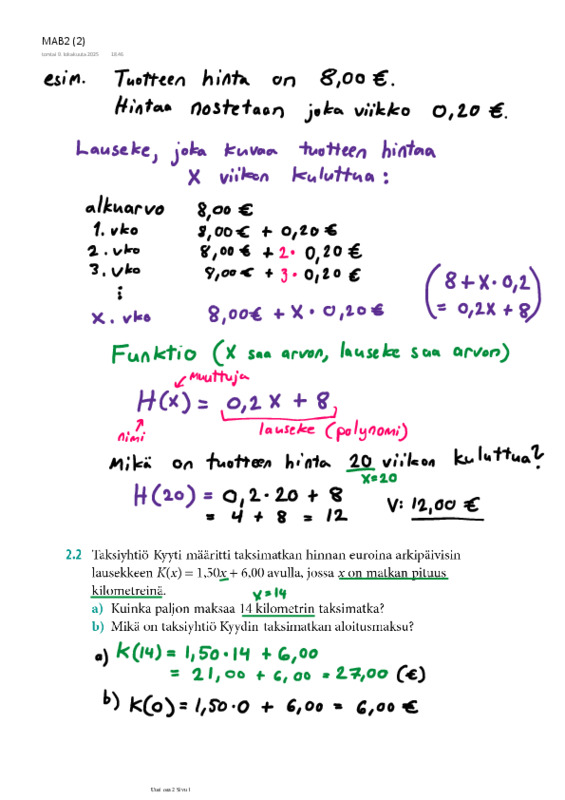 MAB2 (2)
torstai 9. lokakuuta 2025 18.46
esim. Tuotteen hinta on 8,00 €.
Hintaa nostetaan joka viikko 0,20 €.
Lauseke, joka kuvaa tuotteen hintaa
X viikon kuluttua:
alkuarvo 8,00 €
1. vko 8,00 € + 0,20 €
2. vko 8,00 € + 2· 0,20 €
3. vko 8,00 € + 3· 0,20 €
⋮
x. vko 8,00€ + X · 0,20 €
(8 + X · 0,2
= 0,2X + 8)
Funktio (X saa arvon, lauseke saa arvon)
muuttuja
H(x) = 0,2 X + 8
nimi
lauseke (polynomi)
Mikä on tuotteen hinta 20 viikon kuluttua?
x=20
H(20) = 0,2 · 20 + 8
= 4 + 8 = 12
V: 12,00 €
2.2 Taksiyhtiö Kyyti määritti taksimatkan hinnan euroina arkipäivisin
lausekkeen K(x) = 1,50x + 6,00 avulla, jossa x on matkan pituus
kilometreinä.
x = 14
a) Kuinka paljon maksaa 14 kilometrin taksimatka?
b) Mikä on taksiyhtiö Kyydin taksimatkan aloitusmaksu?
a) K(14) = 1,50 · 14 + 6,00
= 21,00 + 6,00 = 27,00 (€)
b) K(0) = 1,50 · 0 + 6,00 = 6,00 €